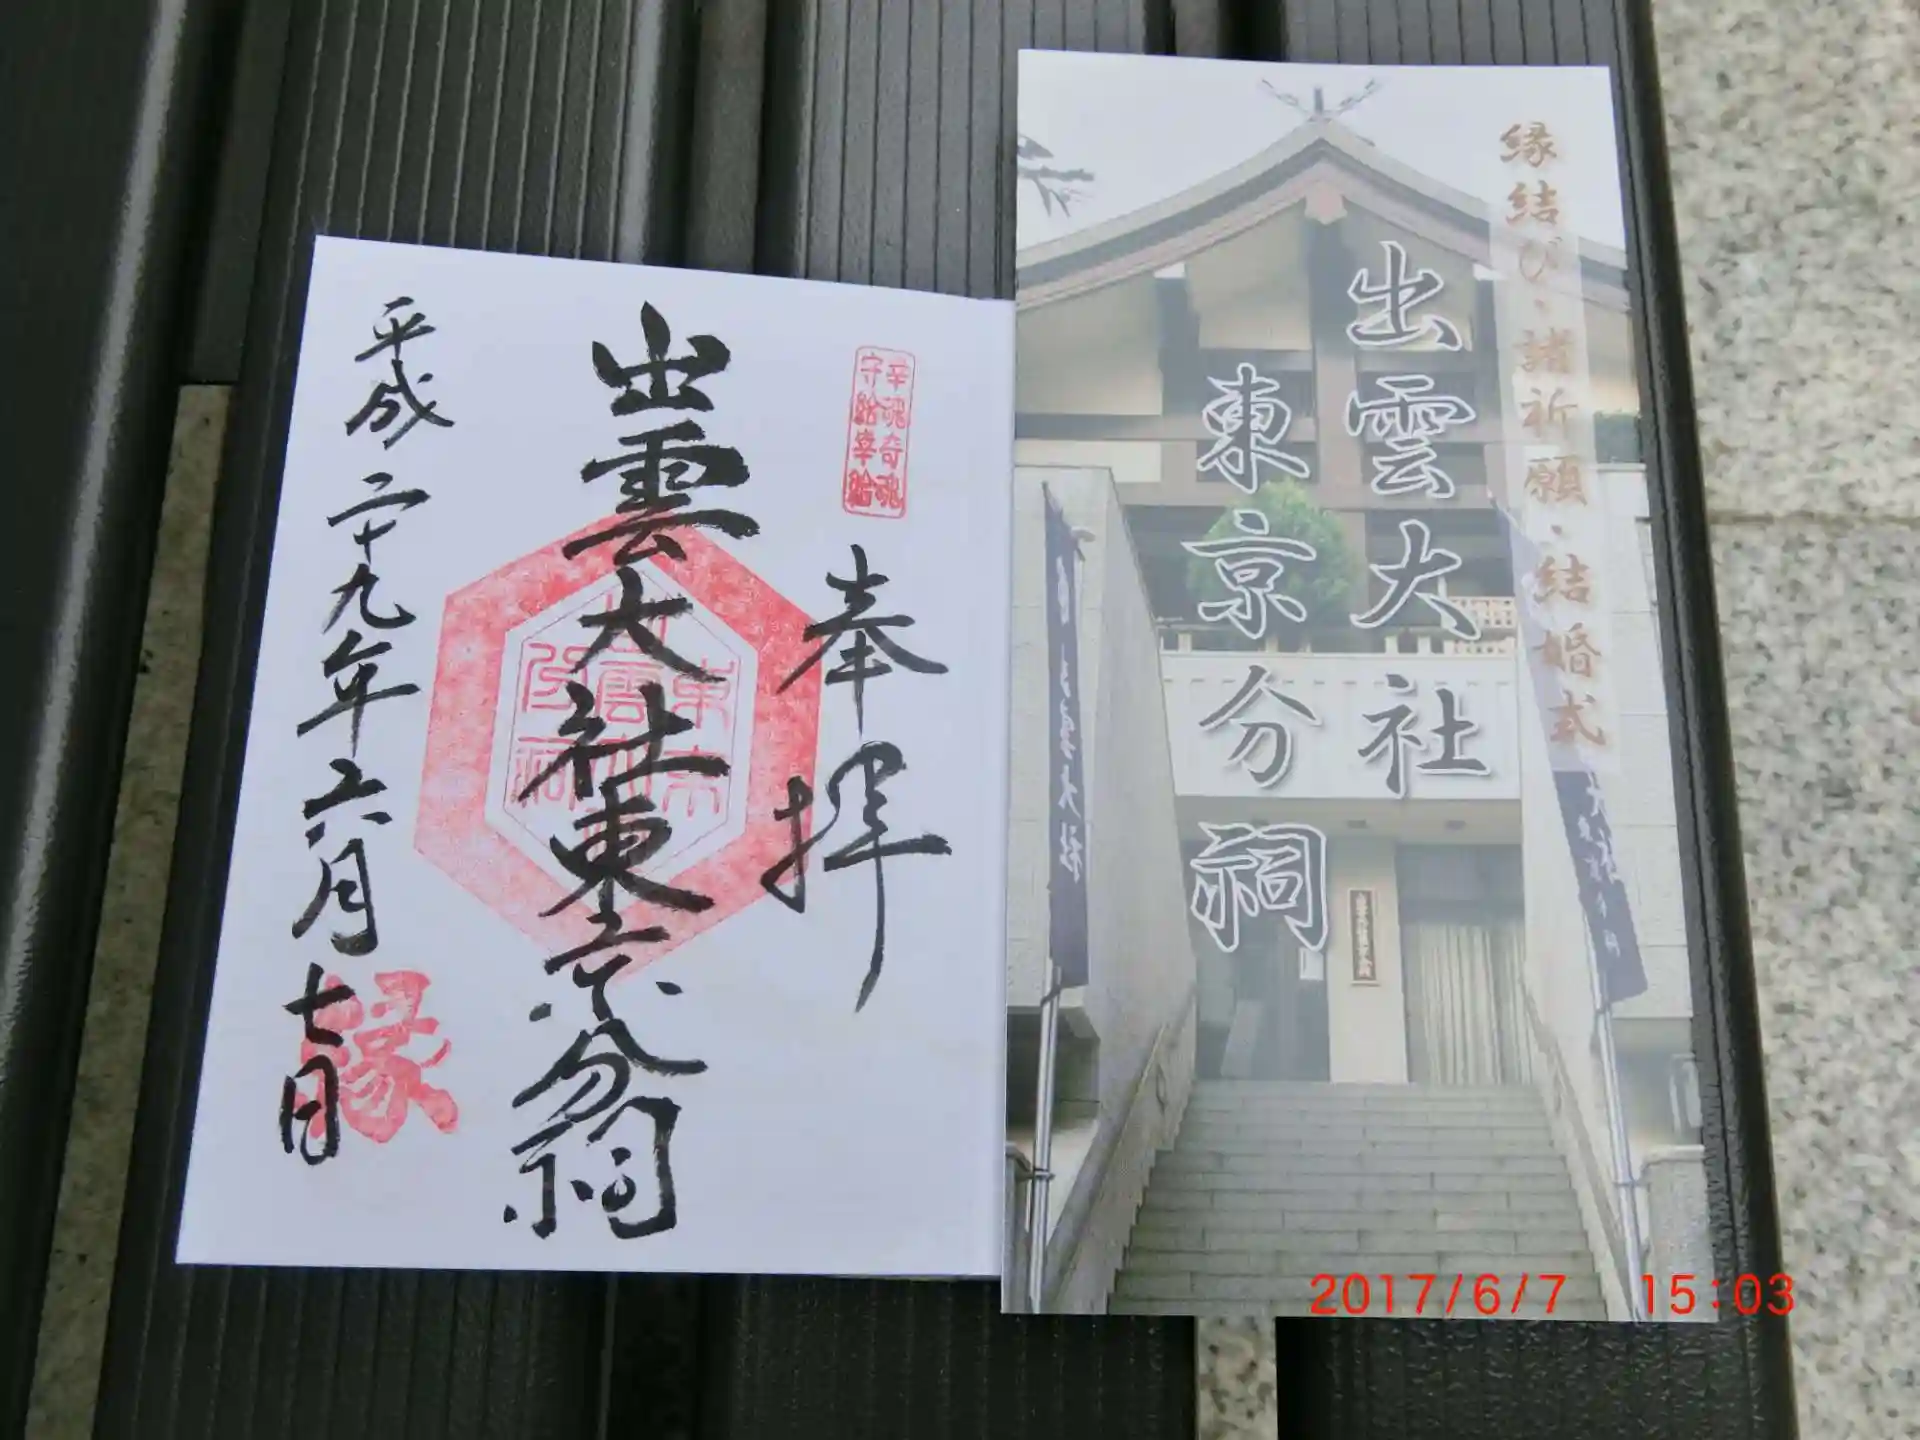 縁結び・諸祈願・結婚式
出雲大社
東京分祠
出雲大社
奉拝
幸魂奇魂
守給幸給
出雲大社東京分祠
平成二十九年六月七日
縁
2017/6/7 15:03